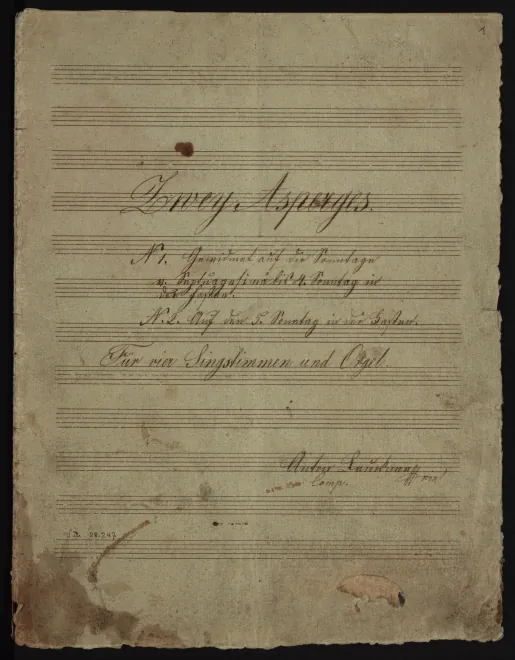 1
Zwey Asperges.
N 1. Gewidmet auf die Sonntage
v. Septuagesima bis 4. Sonntag in
der Fasten.
N. 2. Auf den 5. Sonntag in der Fasten.
Für vier Singstimmen und Orgel.
Anton
Comp.